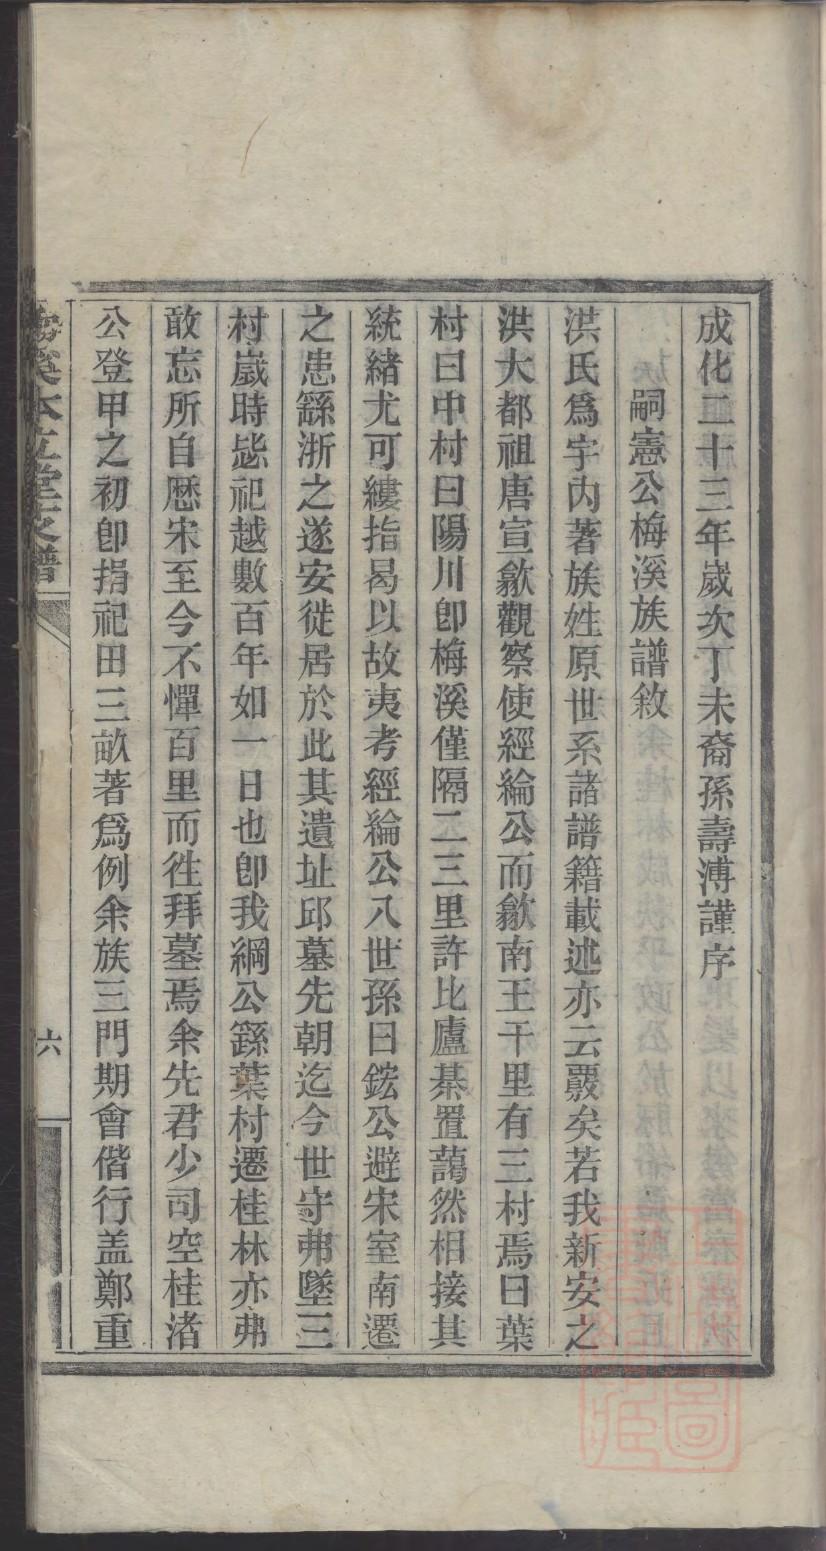 成化二十三年歲次丁未裔孫壽溥謹序
嗣憲公梅溪族譜敘
洪氏爲宇内著族姓原世系諸譜籍載述亦云覈矣若我新安之
洪大都祖唐宣歙觀察使經綸公而歙南王干里有三村焉曰葉
村曰中村曰陽川卽梅溪僅隔二三里許比廬綦置藹然相接其
統緒尤可縷指曷以故夷考經綸公八世孫曰鋐公避宋室南遷
之患繇浙之遂安徙居於此其遺址邱墓先朝迄今世守弗墜三
村歲時毖祀越數百年如一日也卽我綱公繇葉村遷桂林亦弗
敢忘所自歷宋至今不憚百里而徃拜墓焉余先君少司空桂渚
公登甲之初卽捐祀田三畝著爲例余族三門期會偕行盖鄭重
溪本立堂支譜
六